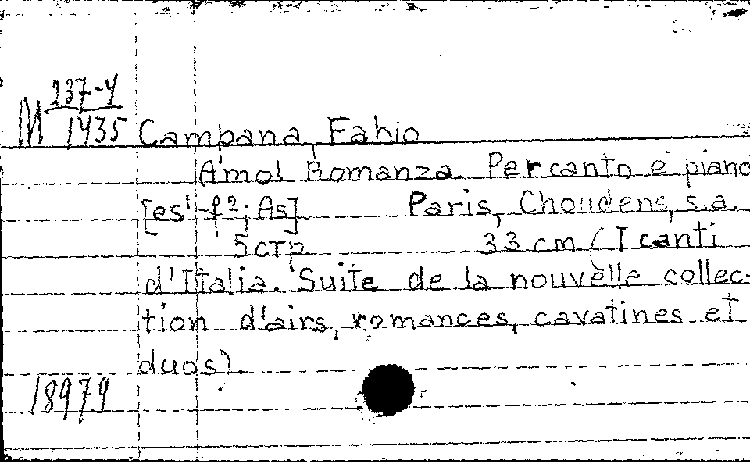 M 237-4
1435
Campana, Fabio
Amo! Romanza. Per canto e piano
[es¹-f²; As] Paris, Choudens, s.a.
5 стр 33 cm. (I canti
d'Italia. Suite de la nouvèlle collec-
tion d'airs, romances, cavatines et
duos).
18979